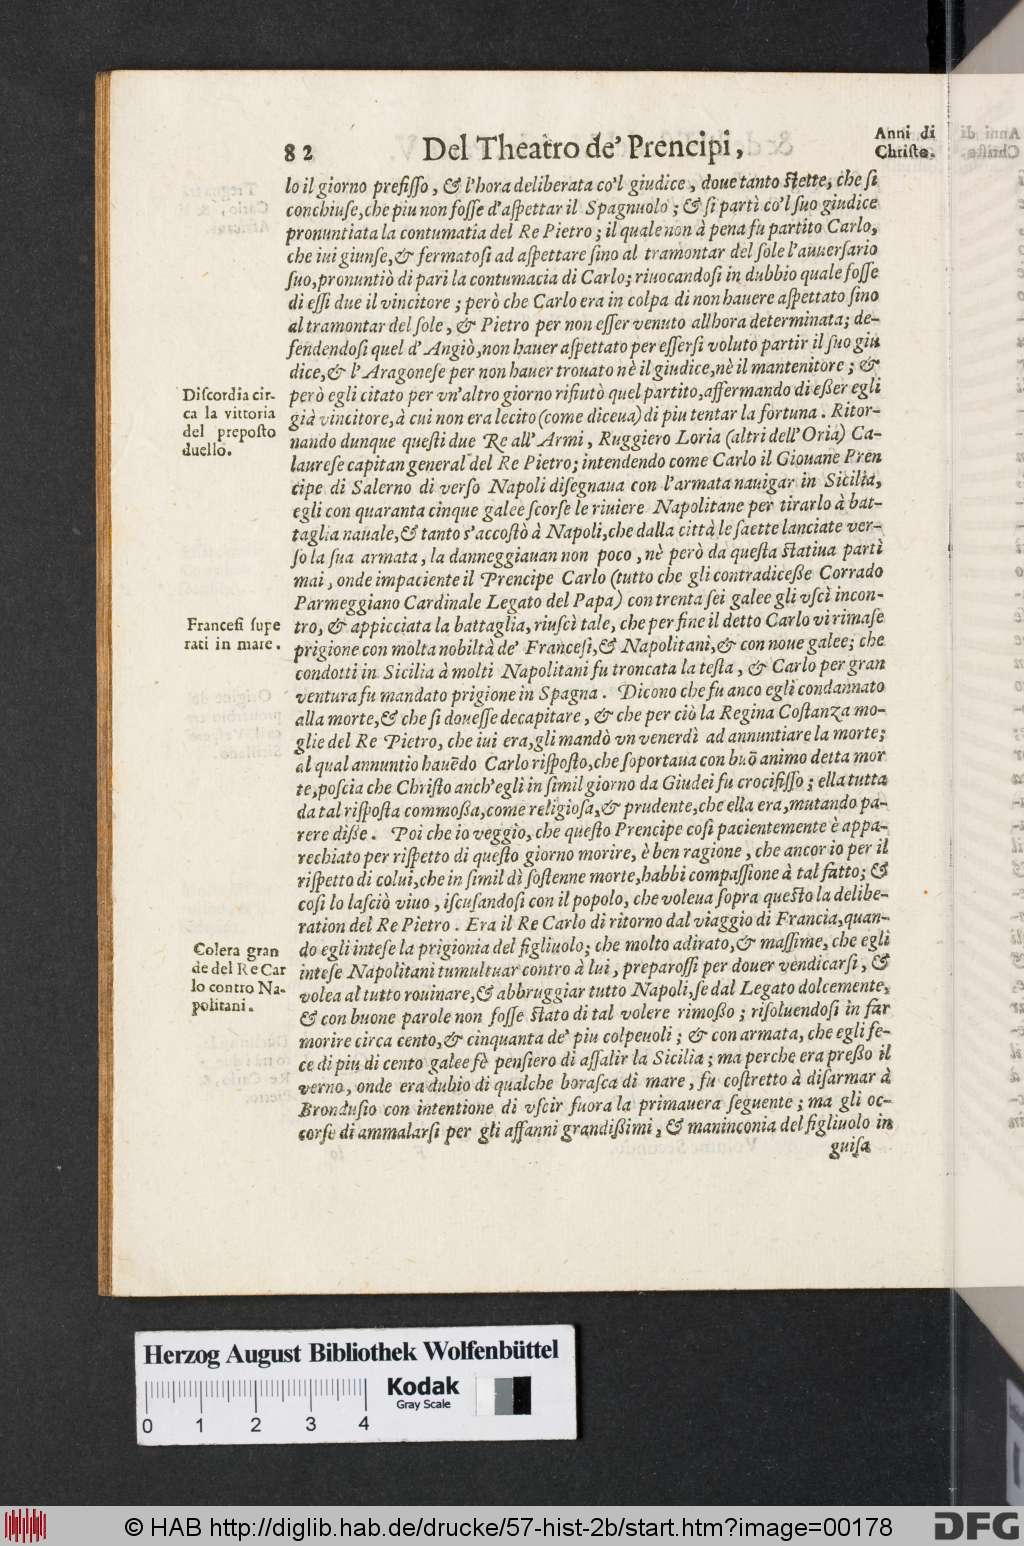 82 Del Theatro de' Prencipi, Anni di Christo.
lo il giorno prefiſſo, & l'hora deliberata co'l giudice, doue tanto ſtette, che ſi
conchiuſe, che piu non foſſe d'aſpettar il Spagnuolo; & ſi partì co'l ſuo giudice
pronuntiata la contumatia del Re Pietro; il quale non à pena fu partito Carlo,
che iui giunſe, & fermatoſi ad aſpettare ſino al tramontar del ſole l'auuerſario
ſuo, pronuntiò di pari la contumacia di Carlo; riuocandoſi in dubbio quale foſſe
di eſſi due il vincitore; però che Carlo era in colpa di non hauere aſpettato ſino
al tramontar del ſole, & Pietro per non eſſer venuto allhora determinata; de-
fendendoſi quel d'Angiò, non hauer aſpettato per eſſerſi voluto partir il ſuo giu
dice, & l'Aragoneſe per non hauer trouato nè il giudice, nè il mantenitore; &
Diſcordia cir-
ca la vittoria
del prepoſto
duello.
però egli citato per vn'altro giorno rifiutò quel partito, affermando di eßer egli
già vincitore, à cui non era lecito (come diceua) di piu tentar la fortuna. Ritor-
nando dunque queſti due Re all'Armi, Ruggiero Loria (altri dell'Oria) Ca-
laureſe capitan general del Re Pietro; intendendo come Carlo il Giouane Pren
cipe di Salerno di verſo Napoli diſegnaua con l'armata nauigar in Sicilia,
egli con quaranta cinque galee ſcorſe le riuiere Napolitane per tirarlo à bat-
taglia nauale, & tanto s'accoſtò à Napoli, che dalla città le ſaette lanciate ver-
ſo la ſua armata, la danneggiauan non poco, nè però da queſta ſtatiua partì
mai, onde impaciente il Prencipe Carlo (tutto che gli contradiceße Corrado
Parmeggiano Cardinale Legato del Papa) con trenta ſei galee gli vſcì incon-
Franceſi ſupe
rati in mare.
tro, & appicciata la battaglia, riuſcì tale, che per fine il detto Carlo vi rimaſe
prigione con molta nobiltà de' Franceſi, & Napolitani, & con noue galee; che
condotti in Sicilia à molti Napolitani fu troncata la teſta, & Carlo per gran
ventura fu mandato prigione in Spagna. Dicono che fu anco egli condannato
alla morte, & che ſi doueſſe decapitare, & che per ciò la Regina Coſtanza mo-
glie del Re Pietro, che iui era, gli mandò vn venerdì ad annuntiare la morte;
al qual annuntio hauēdo Carlo riſpoſto, che ſoportaua con buō animo detta mor
te, poſcia che Chriſto anch'egli in ſimil giorno da Giudei fu crocifiſſo; ella tutta
da tal riſpoſta commoßa, come religioſa, & prudente, che ella era, mutando pa-
rere diße. Poi che io veggio, che queſto Prencipe coſi pacientemente è appa-
recchiato per riſpetto di queſto giorno morire, è ben ragione, che ancor io per il
riſpetto di colui, che in ſimil dì ſoſtenne morte, habbi compaſſione à tal fatto; &
coſi lo laſciò viuo, iſcuſandoſi con il popolo, che voleua ſopra queſto la delibe-
ration del Re Pietro. Era il Re Carlo di ritorno dal viaggio di Francia, quan-
Colera gran
de del Re Car
lo contro Na-
politani.
do egli inteſe la prigionia del figliuolo; che molto adirato, & maſſime, che egli
inteſe Napolitani tumultuar contro à lui, preparoſſi per douer vendicarſi, &
volea al tutto rouinare, & abbruggiar tutto Napoli, ſe dal Legato dolcemente,
& con buone parole non foſſe ſtato di tal volere rimoßo; riſoluendoſi in far
morire circa cento, & cinquanta de' piu colpeuoli; & con armata, che egli fe-
ce di piu di cento galee fè penſiero di aſſalir la Sicilia; ma perche era preßo il
verno, onde era dubio di qualche boraſca di mare, fu coſtretto à diſarmar à
Broneduſio con intentione di vſcir fuora la primauera ſeguente; ma gli oc-
corſe di ammalarſi per gli affanni grandißimi, & maninconia del figliuolo in
guiſa
Herzog August Bibliothek Wolfenbüttel
Kodak
Gray Scale
0 1 2 3 4
© HAB http://diglib.hab.de/drucke/57-hist-2b/start.htm?image=00178
DFG